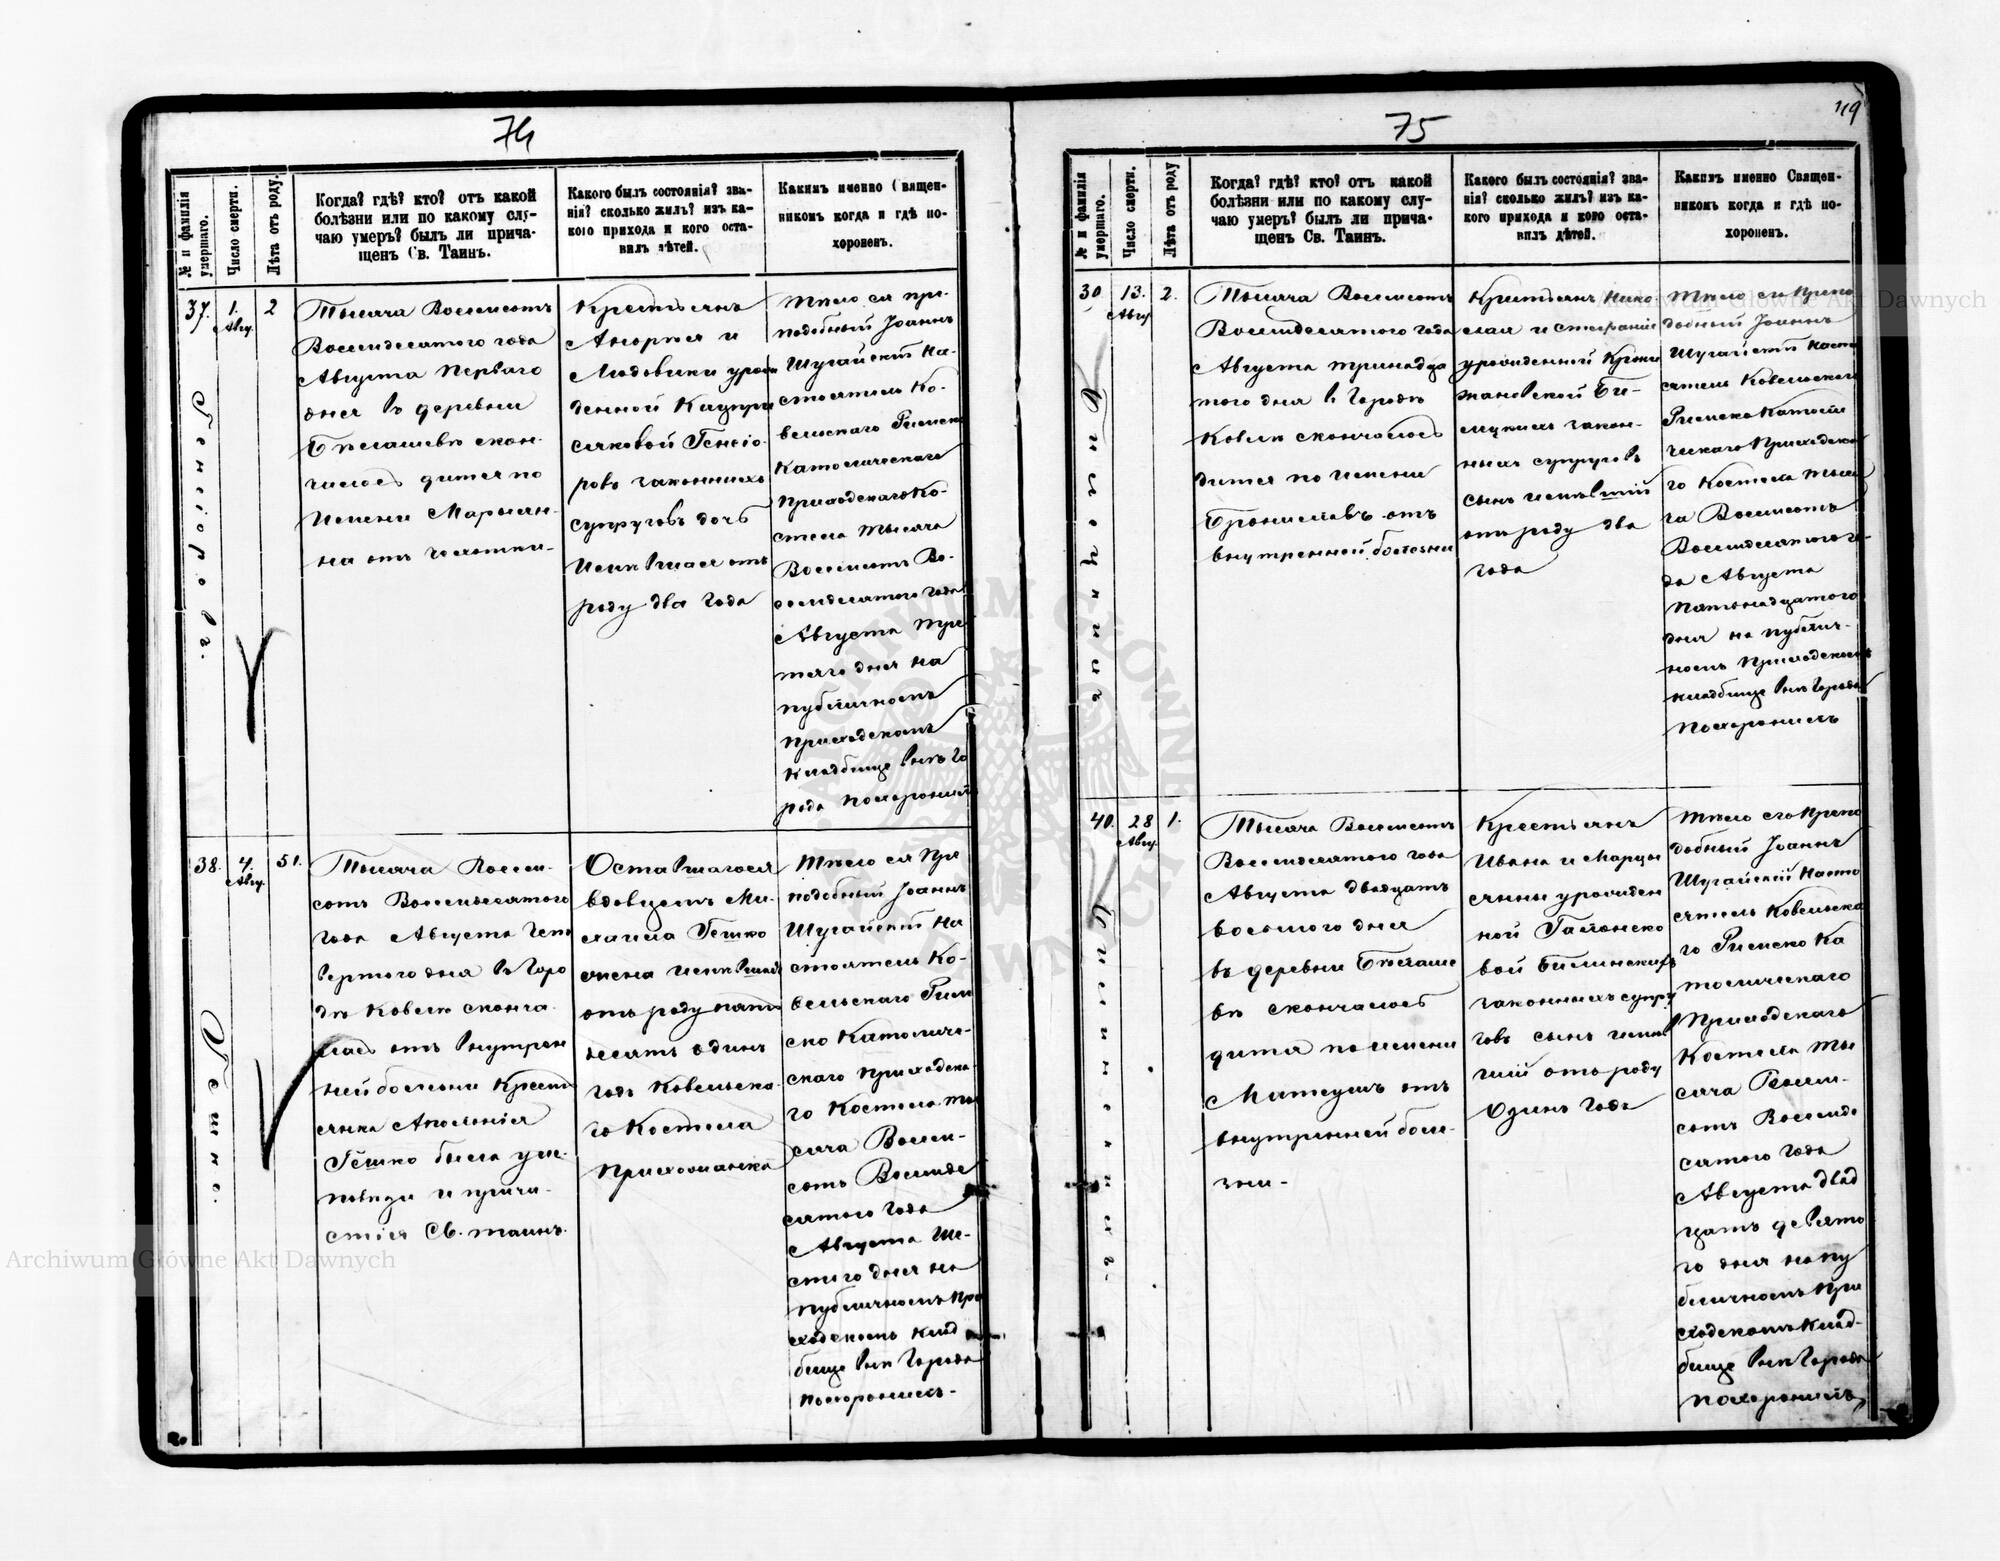 74
№ и фамилія умершаго.
Число смерти.
Лѣта отъ роду.
Когда? гдѣ? кто? отъ какой
болѣзни или по какому слу-
чаю умеръ? былъ ли прича-
щенъ Св. Таинъ.
Какого былъ состоянія? зва-
нія? сколько жилъ? изъ ка-
кого прихода и кого оста-
вилъ дѣтей.
Какимъ именно Священ-
никомъ когда и гдѣ по-
хороненъ.
37.
1.
Авгу.
2
Тысяча Восемьсотъ
Восемдесятого года
Августа Перваго
дня въ деревни
Бѣлашевѣ скон-
чалось дитя по
Имени Марьян-
на отъ
Крестьянъ
и
Людовики урож
денной
законныхъ
супруговъ дочь
Имѣвшая отъ
роду два года
Тѣло ея пре-
подобный Іоаннъ
Шугайскій На-
стоятель Ко-
вельскаго Римско
Католическаго
Приходскаго Ко-
стела Тысяча
Восемьсотъ Во-
семдесятого года
Августа Тре
тяго дня на
публичномъ
Приходскомъ
кладбище внѣ Го
рода похоронилъ
38.
4.
Авгу.
51.
Тысяча Восемь-
сотъ Восемьдесятого
года Августа Чет
вертого дня въ Горо
дѣ Ковелѣ сконча
лась отъ внутрен
ней болезни Кресть
янка Аполонія
Гешко была у ис-
поведи и прича-
стія Св. таинъ.
Оставшагося
вдовцемъ Ми-
хаила Гешко
жена имѣвшая
отъ роду пять
десятъ одинъ
годъ Ковельска-
го Костела
Прихожанка
Тѣло ея Пре
подобный Іоаннъ
Шугайскій На
стоятель Ко-
вельскаго Рим
ско Католиче-
скаго Приходска-
го Костела ты
сяча Восемь-
сотъ Восемьде
сятого года
Августа Ше-
стого дня на
публичномъ При
ходскомъ клад
бище внѣ Города
похоронилъ-
Гешко.
75
119
№ и фамилія умершаго.
Число смерти.
Лѣта отъ роду
Когда? гдѣ? кто? отъ какой
болѣзни или по какому слу-
чаю умеръ? былъ ли прича-
щенъ Св. Таинъ.
Какого былъ состоянія? зва-
нія? сколько жилъ? изъ ка-
кого прихода и кого оста-
вилъ дѣтей.
Какимъ именно Священ-
никомъ когда и гдѣ по-
хороненъ.
30
13.
Авгу
2.
Тысяча Восемьсотъ
Восемдесятого года
Августа тринадца
того дня в Городѣ
Ковелѣ скончалось
дитя по имени
Брониславъ отъ
внутренной болезни
Крестьянъ Нико
лая и Стефаніи
урожденной
жановской Би-
закон-
ныхъ супруговъ
сынъ имѣвшій
отъ роду два
года
Тѣло ея Препо
добный Іоаннъ
Шугайскій Насто
ятель Ковельскаго
Римско Католи
ческаго Приходска
го Костела тыся
ча Восемьсотъ
Восемдесятого го-
да Августа
Пятьнадцатого
дня на публич-
номъ Приходскомъ
кладбище внѣ Города
похоронилъ
40.
28
Авгу.
1.
Тысяча Восемьсотъ
Восемдесятого года
Августа двадцать
восьмого дня
въ деревни Бѣлаше
вѣ скончалось
дитя по имени
Матеушъ отъ
внутренней боле-
зни-
Крестьянъ
Ивана и Марцы
янны урожден
ной Гапонско
вой Билинскихъ
законныхъ супру
говъ сынъ имѣв
шій отъ роду
Одинъ годъ
Тѣло его Препо
добный Іоаннъ
Шугайскій Насто
ятель Ковельска
го Римско Ка
толическаго
Приходскаго
Костела Ты
сяча Восемь-
сотъ Восемьде
сятого года
Августа двад
цать девято
го дня на пу
бличномъ При
ходскомъ клад-
бище внѣ Города
похоронилъ
Archiwum Główne Akt Dawnych
Archiwum Główne Akt Dawnych
ARCHIWUM GŁÓWNE AKT DAWNYCH